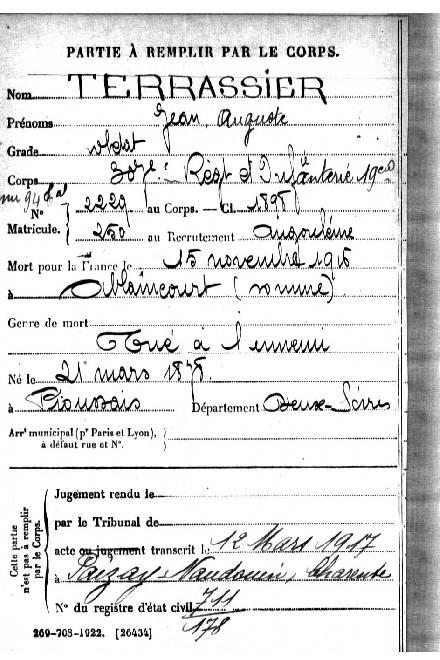 PARTIE À REMPLIR PAR LE CORPS.
Nom TERRASSIER
Prénoms Jean Auguste
Grade soldat
Corps Régt d'Infanterie 19
N° 2229 au Corps. — Cl. 1898
Matricule. 250 au Recrutement Angoulême
Mort pour la France le 15 novembre 1916
à Ablaincourt (somme).
Genre de mort
Tué à l'ennemi
Né le 21 mars 1878
à Pioussais Département Deux-Sèvres
Arrt municipal (pr Paris et Lyon),
à défaut rue et N°.
Cette partie n'est pas à remplir par le Corps.
Jugement rendu le
par le Tribunal de
acte ou jugement transcrit le 12 Mars 1917
à Paizay-Naudouin, Charente
N° du registre d'état civil 711
178
269-708-1922. [26434]